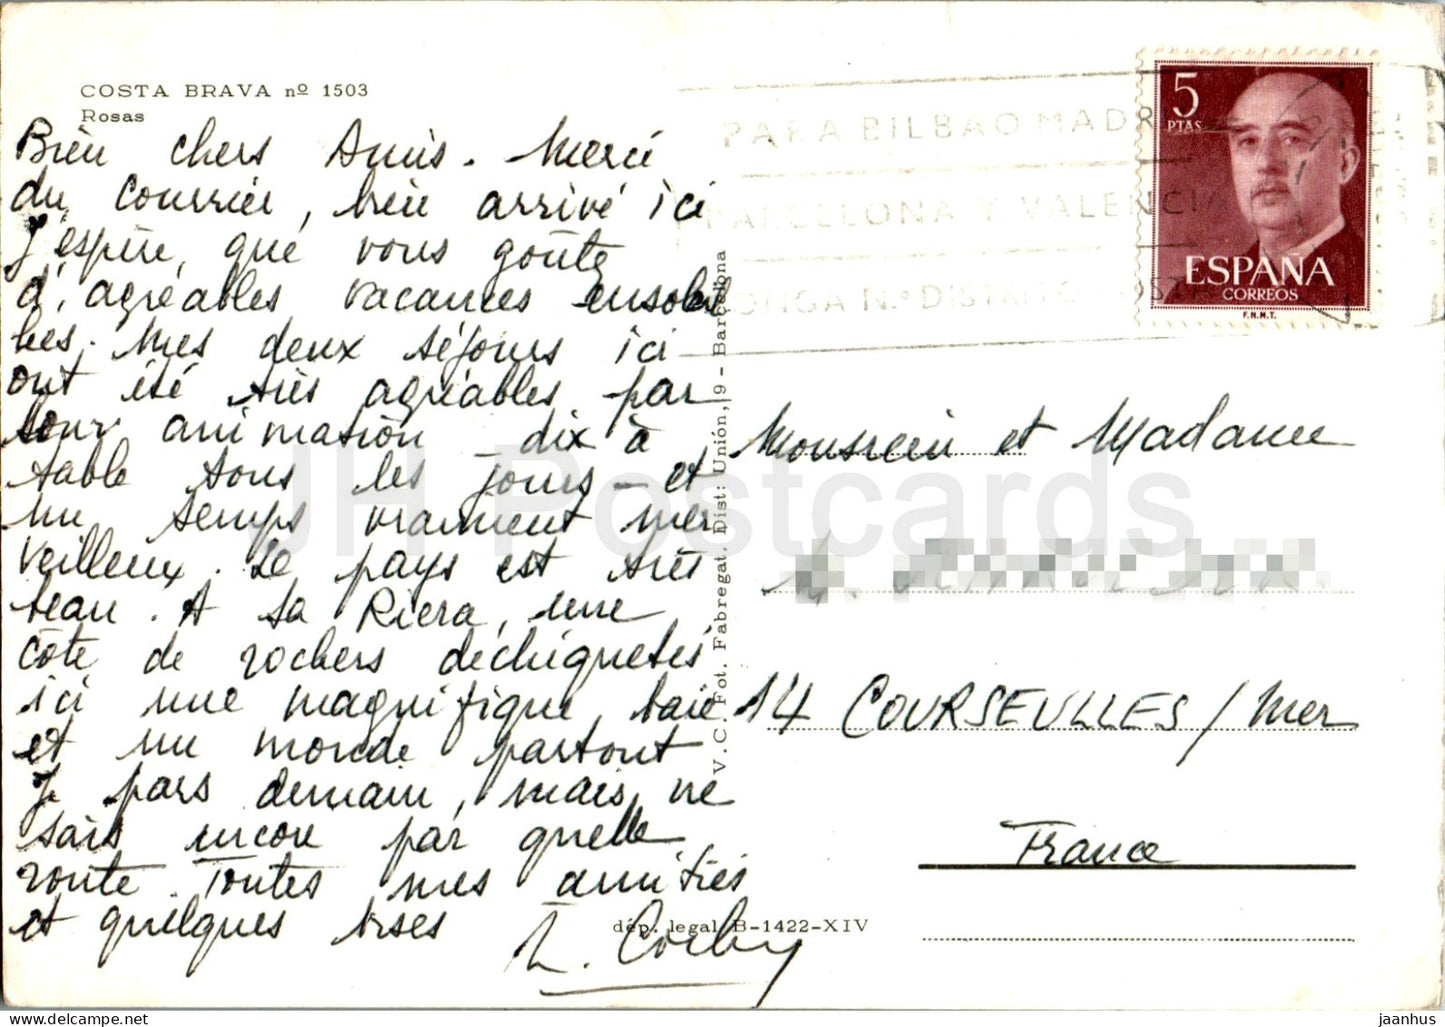 COSTA BRAVA nº 1503
Rosas
Bien chers Amis. Merci
du courrier, bien arrivé ici
J'espère que vous goûtez
d'agréables vacances ensoleil
lées. Mes deux séjours ici
ont été très agréables par
leur animation dix à
table tous les jours - et
un temps vraiment mer
veilleux. Le pays est très
beau. A La Riera, une
côte de rochers déchiquetés
ici une magnifique baie
et un monde partout
Je pars demain, mais ne
sais encore par quelle
route. Toutes mes amitiés
et quelques bises
Corby
dép. legal B-1422-XIV
V. C. Fot. Fabregat. Dist: Unión, 9 - Barcelona
PARA BILBAO MADR
BARCELONA Y VALENCIA
PONGA N.º DISTRITO
5
PTAS
ESPAÑA
CORREOS
F.N.M.T.
Monsieur et Madame
14 COURSEULLES / Mer
France
JH Postcards
jaanhus © www.delcampe.net